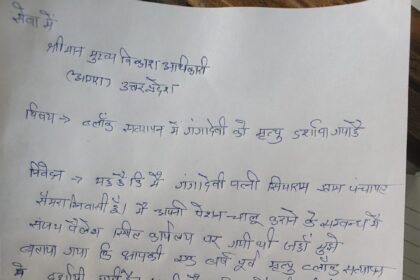 सेवा में
श्रीमान मुख्य विकास अधिकारी
(आगरा) उत्तर प्रदेश
विषय → ब्लॉक सत्यापन में गंगादेवी को मृत्यु दर्शाया गया है
निवेदन → यह है कि मैं गंगादेवी पत्नी सियाराम ग्राम पंचायत
सैमरा निवासी हूँ। मैं अपनी पेंशन चालू कराने के सम्बन्ध में
संजय पैलेस स्थित कार्यालय पर गयी थी जहाँ मुझे
बताया गया कि आपकी एक वर्ष पूर्व मृत्यु ब्लॉक सत्यापन
में दर्शायी